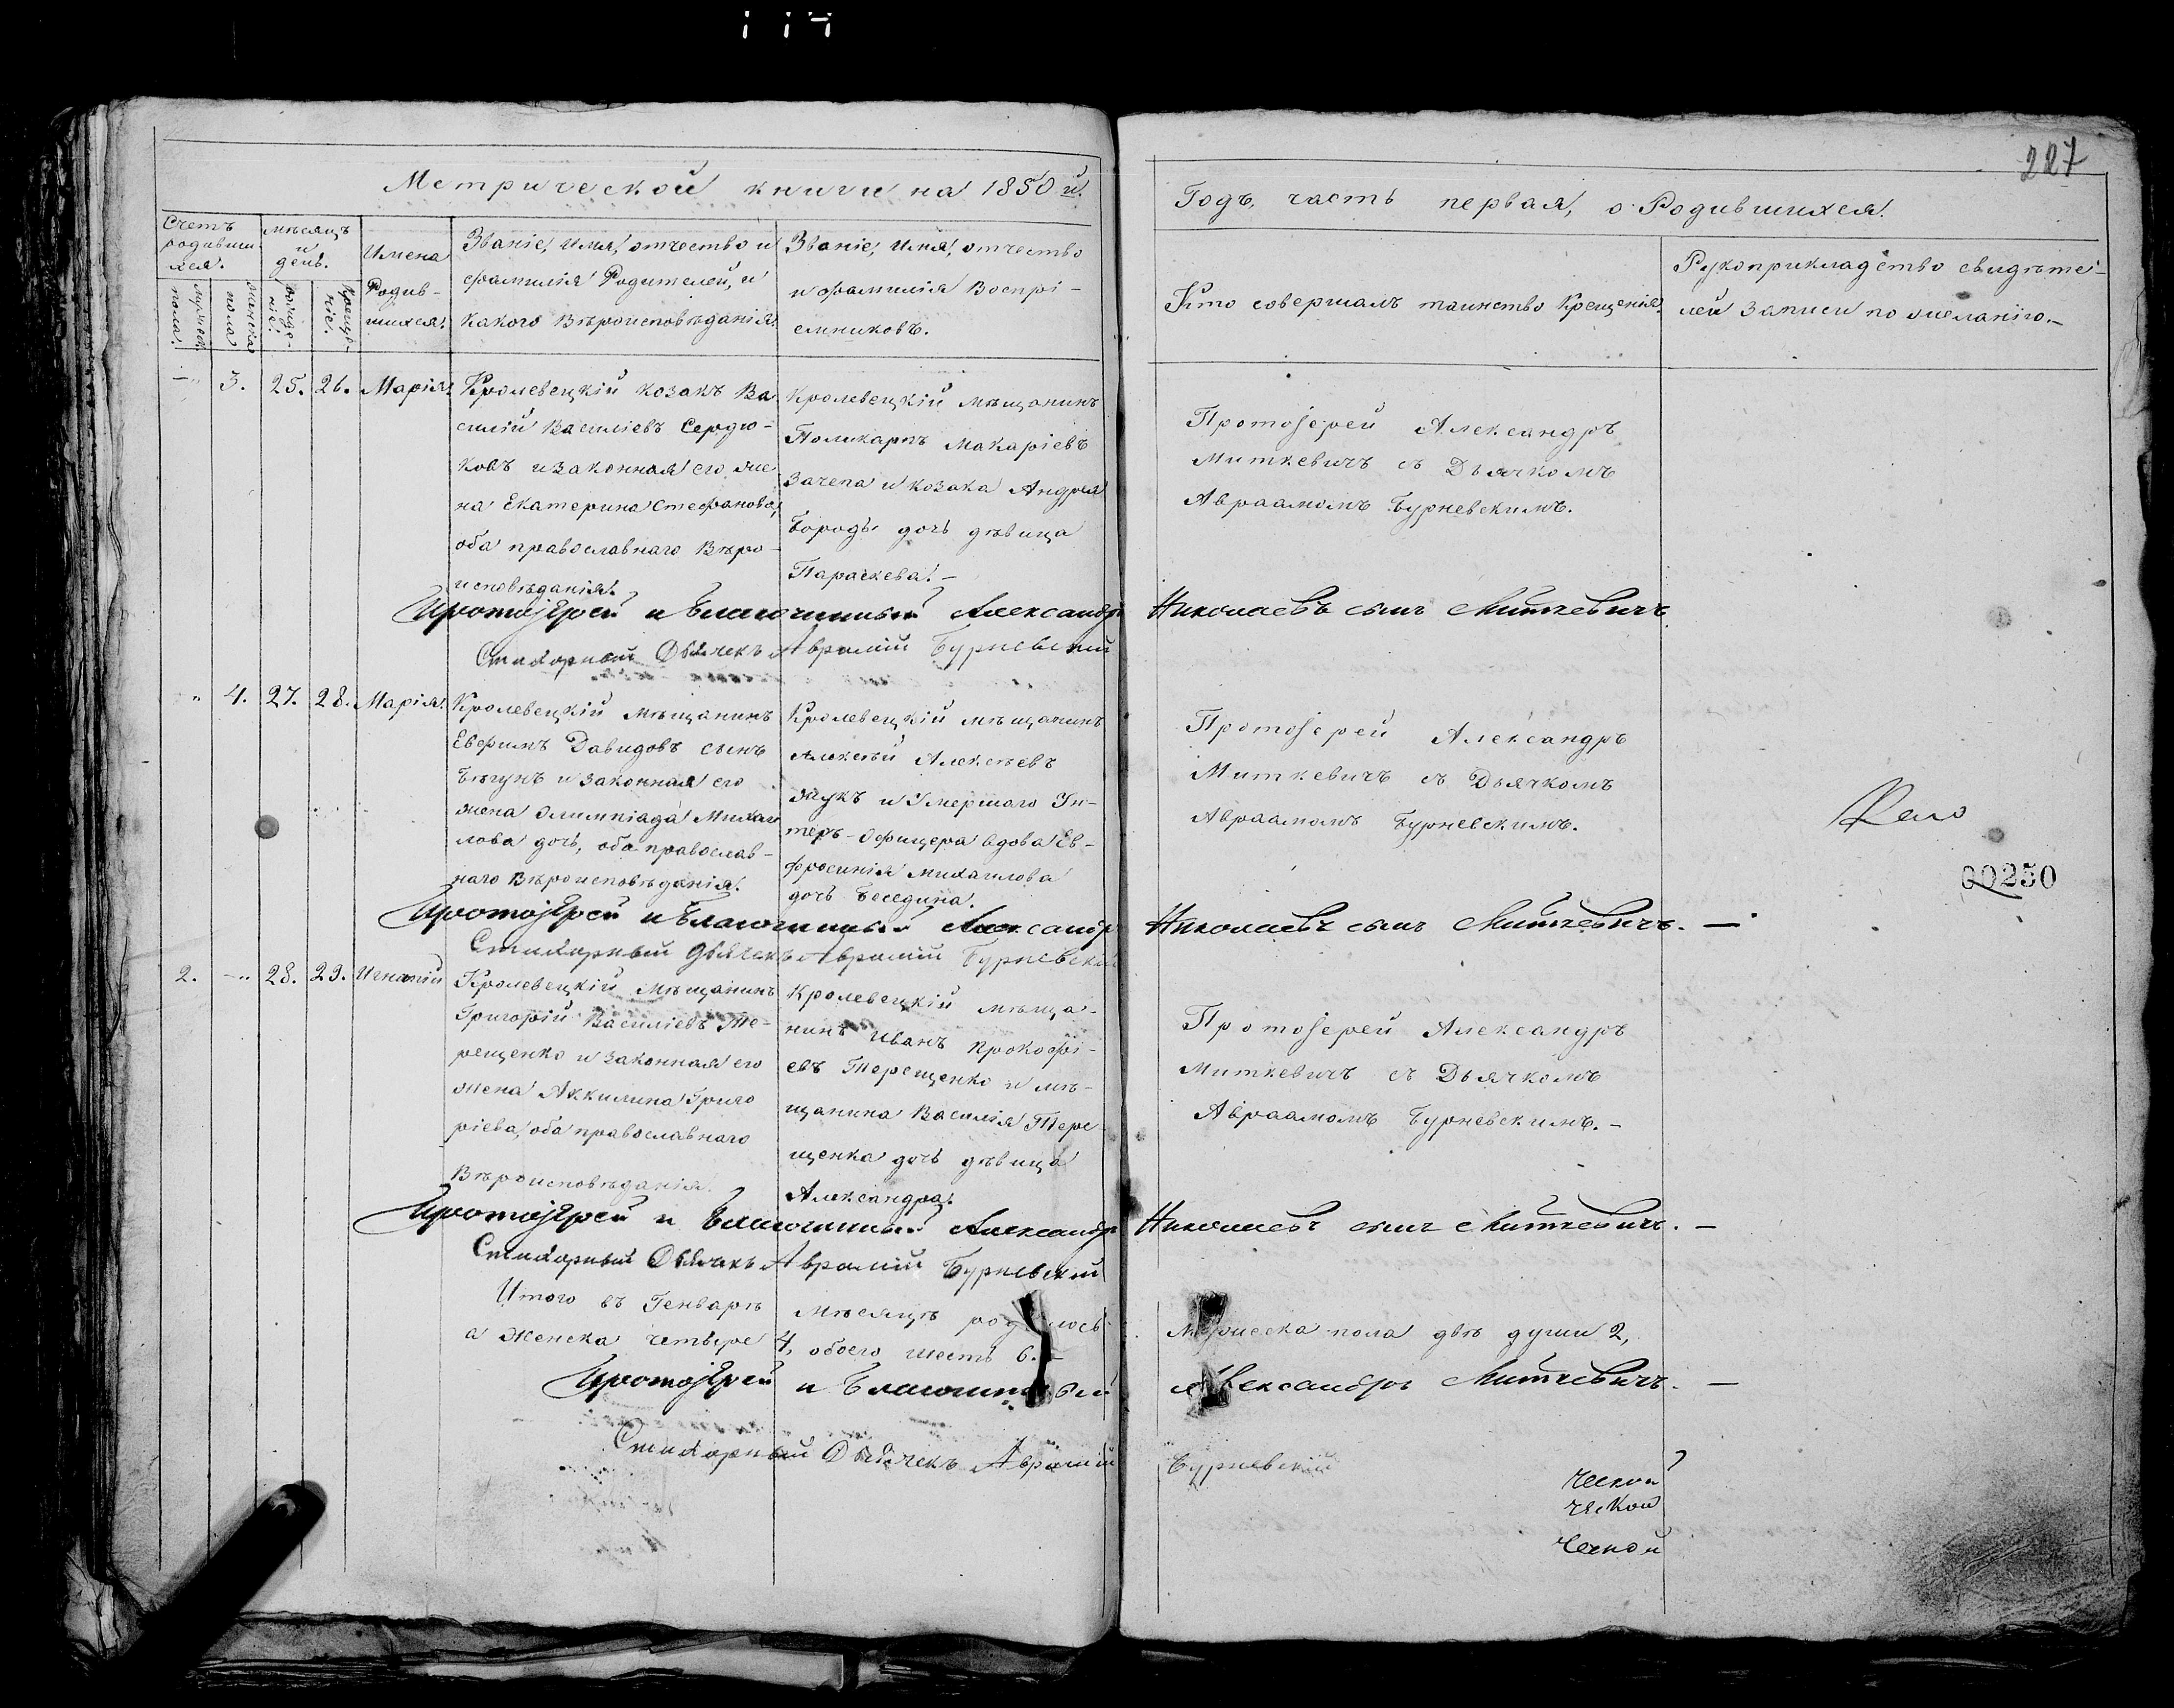 227
Метрической книги на 1850 й.
Годъ, часть первая, о Родившихся.
Счетъ родивших­ся.
мужеск: пола.
женска пола
мѣсяцъ и день.
рожде­ніе.
Крещен­іе.
Имена
Родив-
шихся.
Званіе, имя, отчество и
фамилія Родителей, и
какого Вѣроисповѣданія.
Званіе, имя, отчество
и фамилія Воспрі-
емниковъ.
Кто совершалъ таинство Крещенія.
Рукоприкладство свидѣте-
лей записи по желанію.
–" 3. 25. 26. Марія.
Кролевецкій козакъ Ва
силій Василіевъ Сердю-
ковъ и законная его же
на Екатерина Стефанова,
оба православнаго Вѣро-
исповѣданія.
Кролевецкій мѣщанинъ
Поликарпъ Макаріевъ
Зачепа и козака Андрея
Бороды дочь дѣвица
Параскева. –
Протоіерей Александръ
Миткевичъ съ Дьячкомъ
Авраамомъ Бурневскимъ.
Протоіерей и Благочинный Александръ Николаевъ сынъ Миткевичъ.
Стихарный Дьячекъ Аврамій Бурневский
" 4. 27. 28. Марія.
Кролевецкій мѣщанинъ
Евфимъ Давидовъ сынъ
Бѣгунъ и законная его
жена Олимпіада Михаи
лова дочь, оба православ-
наго Вѣроисповѣданія.
Кролевецкій мѣщанинъ
Алексѣй Алексѣевъ
Жукъ и умершаго Ун-
теръ-Офицера вдова Ев-
фросинія Михаилова
дочь Беседина.
Протоіерей Александръ
Миткевичъ съ Дьячкомъ
Авраамомъ Бурневскимъ.
00250
Протоіерей и Благочинный Александръ Николаевъ сынъ Миткевичъ. –
Стихарный Дьячекъ Аврамій Бурневский
2. –" 28. 29. Игнатій
Кролевецкій Мѣщанинъ
Григорій Василіевъ Те-
рещенко и законная его
жена Аккилина Григо
ріева, оба православнаго
Вѣроисповѣданія.
Кролевецкій мѣща-
нинъ Иванъ Прокофі-
евъ Терещенко и мѣ-
щанина Василія Тере
щенка дочь дѣвица
Александра.
Протоіерей Александръ
Миткевичъ съ Дьячкомъ
Авраамомъ Бурневскимъ. –
Протоіерей и Благочинный Александръ Николаевъ сынъ Миткевичъ. –
Стихарный Дьячекъ Аврамій Бурневский
Итого въ Генварѣ мѣсяцѣ родилось Мужеска пола двѣ души 2,
а женска четыре 4, обоего шесть 6. –
Протоіерей и Благочинный Александръ Миткевичъ. –
Стихарный Дьячекъ Аврамій Бурневский
ческой
ческой
ческой